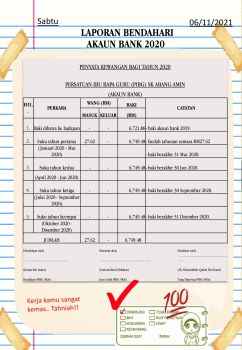 Sabtu 06/11/2021
LAPORAN BENDAHARI
AKAUN BANK 2020
PENYATA KEWANGAN BAGI TAHUN 2020
PERSATUAN IBU BAPA GURU (PIBG) SK ABANG AMIN
(AKAUN BANK)
BIL PERKARA WANG (RM) BAKI CATATAN
MASUK KELUAR (RM)
1. Baki dibawa ke hadapan - - 6,721.86 baki akaun bank 2019.
2. Suku tahun pertama 27.62 - 6,749.48 faedah tahunan semasa RM27.62
(Januari 2020 - Mac 2020)
baki berakhir 31 Mac 2020.
3. Suku tahun kedua - - 6,749.48 baki berakhir 30 Jun 2020.
(April 2020 - Jun 2020)
4. Suku tahun ketiga - - 6,749.48 baki berakhir 30 September 2020.
(Julai 2020 - September 2020)
5. Suku tahun keempat - - 6,749.48 baki berakhir 31 Disember 2020.
(Oktober 2020 - Disember 2020)
JUMLAH 27.62 - 6,749.48
Kerja kamu sangat
kemas.. Tahniah!!
100